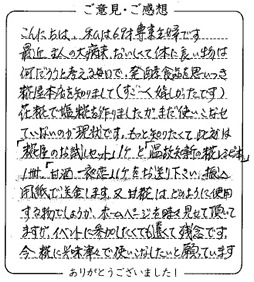 ご意見・ご感想
こんにちは、私は69才専業主婦です
最近 主人の大病来、おいしくて体に良い物は
何だろうと考える毎日で、発酵食品を思いつき
糀屋本店を知りまして(すごく嬉しかったです)
花糀で塩糀を作りましたがまだ使いこなせ
ていないのが現状です。もっと知りたくて此方は
「糀屋のお試しセット」1ケと「温故知新の糀レシピ本」
1冊、「甘酒一夜恋」1ケをお送り下さい。振込
用紙で送金します。又甘糀はどのように使用
する物でしょうか、ホームページを時々見せて頂いて
ますが、イベントに参加したくても遠くて残念です。
今糀に興味津々で使いこなしたいと願っています
ありがとうございました!